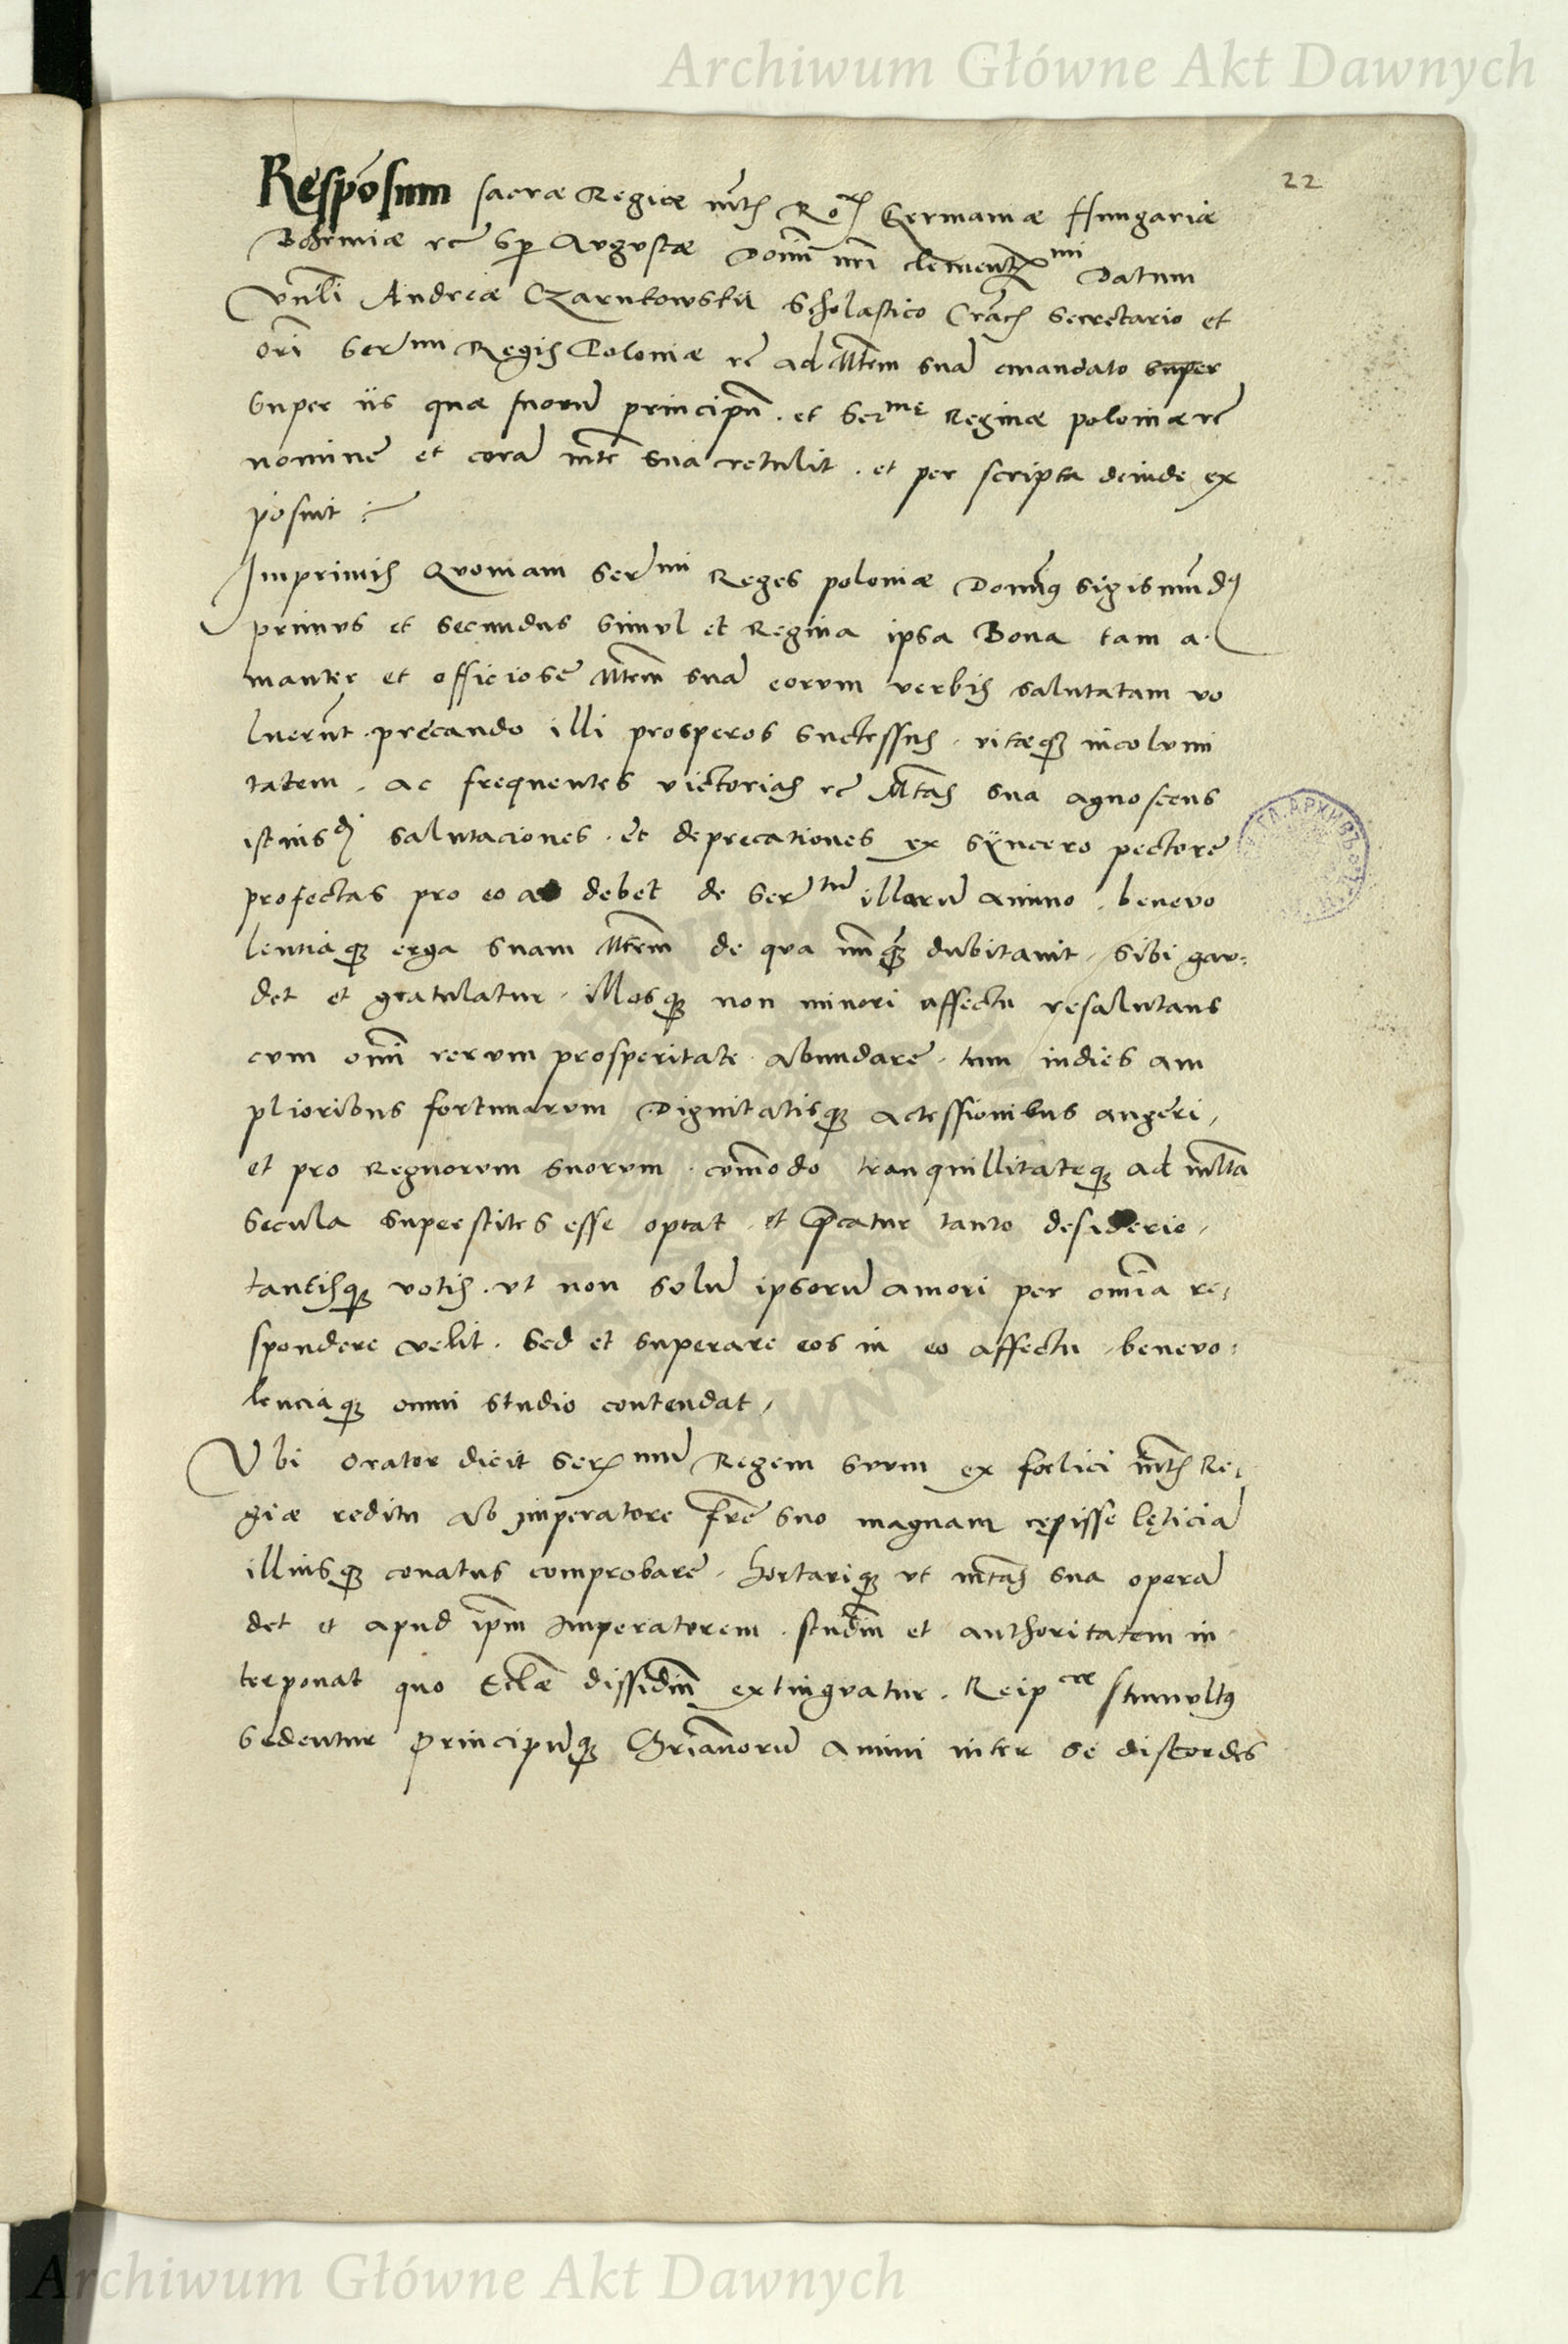 Archiwum Główne Akt Dawnych
22
Responsum sacræ Regiæ mtis Ro. Germaniæ Hungariæ
Bohemiæ rc sp Augustæ Domi nri clement.mi Datum
Vnli Andreæ Czarnkowski Scholastico Crac. Secretario et
Ori Sermi Regis Poloniæ rc ad Mtem suã emandato super
super iis quæ suorũ principũ. et Serme Reginæ poloniæ rc
nomine et corã mte sua retulit. et per scripta deinde ex
posuit :
Imprimis Quoniam Sermi Reges poloniæ Domin9 Sigismũd9
primus et secundus simul et Regina ipsa Bona tam a
manter et officiose Mtem suã eorum verbis salutatam vo
luerũt. precando illi prosperos successus. vitæq3 incolumi
tatem. ac frequentes victorias rc Mtas sua agnoscens
istius salutaciones. et deprecationes ex syncero pectore
profectas pro eo ac debet de Sertũ illarũ animo. benevo
lentiaq3 erga suam Mtem de qua nũq3 dubitauit, sibi gau=
det et gratulatur. illosq3 non minori affectu resalutans
cum omi rerum prosperitate abundare. tum indies am
plioribus fortunarum Dignitatisq3 accessionibus augeri,
et pro Regnorum suorum. comodo tranquillitateq3 ad mlta
secula superstites esse optat. et pcatur tanto desiderio,
tantisq3 votis. vt non solũ ipsorũ amori per omia re,
spondere velit. Sed et superare eos in eo affectu, benevo:
lenciaq3 omni studio contendat,
Vbi Orator dicit Ser.mũ Regem suum ex fœlici mtis Re,
giæ reditu ab imperatore fre suo magnam cępisse lęticiã
illiusq3 conatus comprobare. hortariq3 vt mtas sua operã
det et apud ipm Imperatorem. studiũ et authoritatem in
terponat quo Ecclæ dissidiũ extinguatur. Reipcæ tumultus
sedentur Principũq3 Chrianorũ animi inter se discordes
Archiwum Główne Akt Dawnych